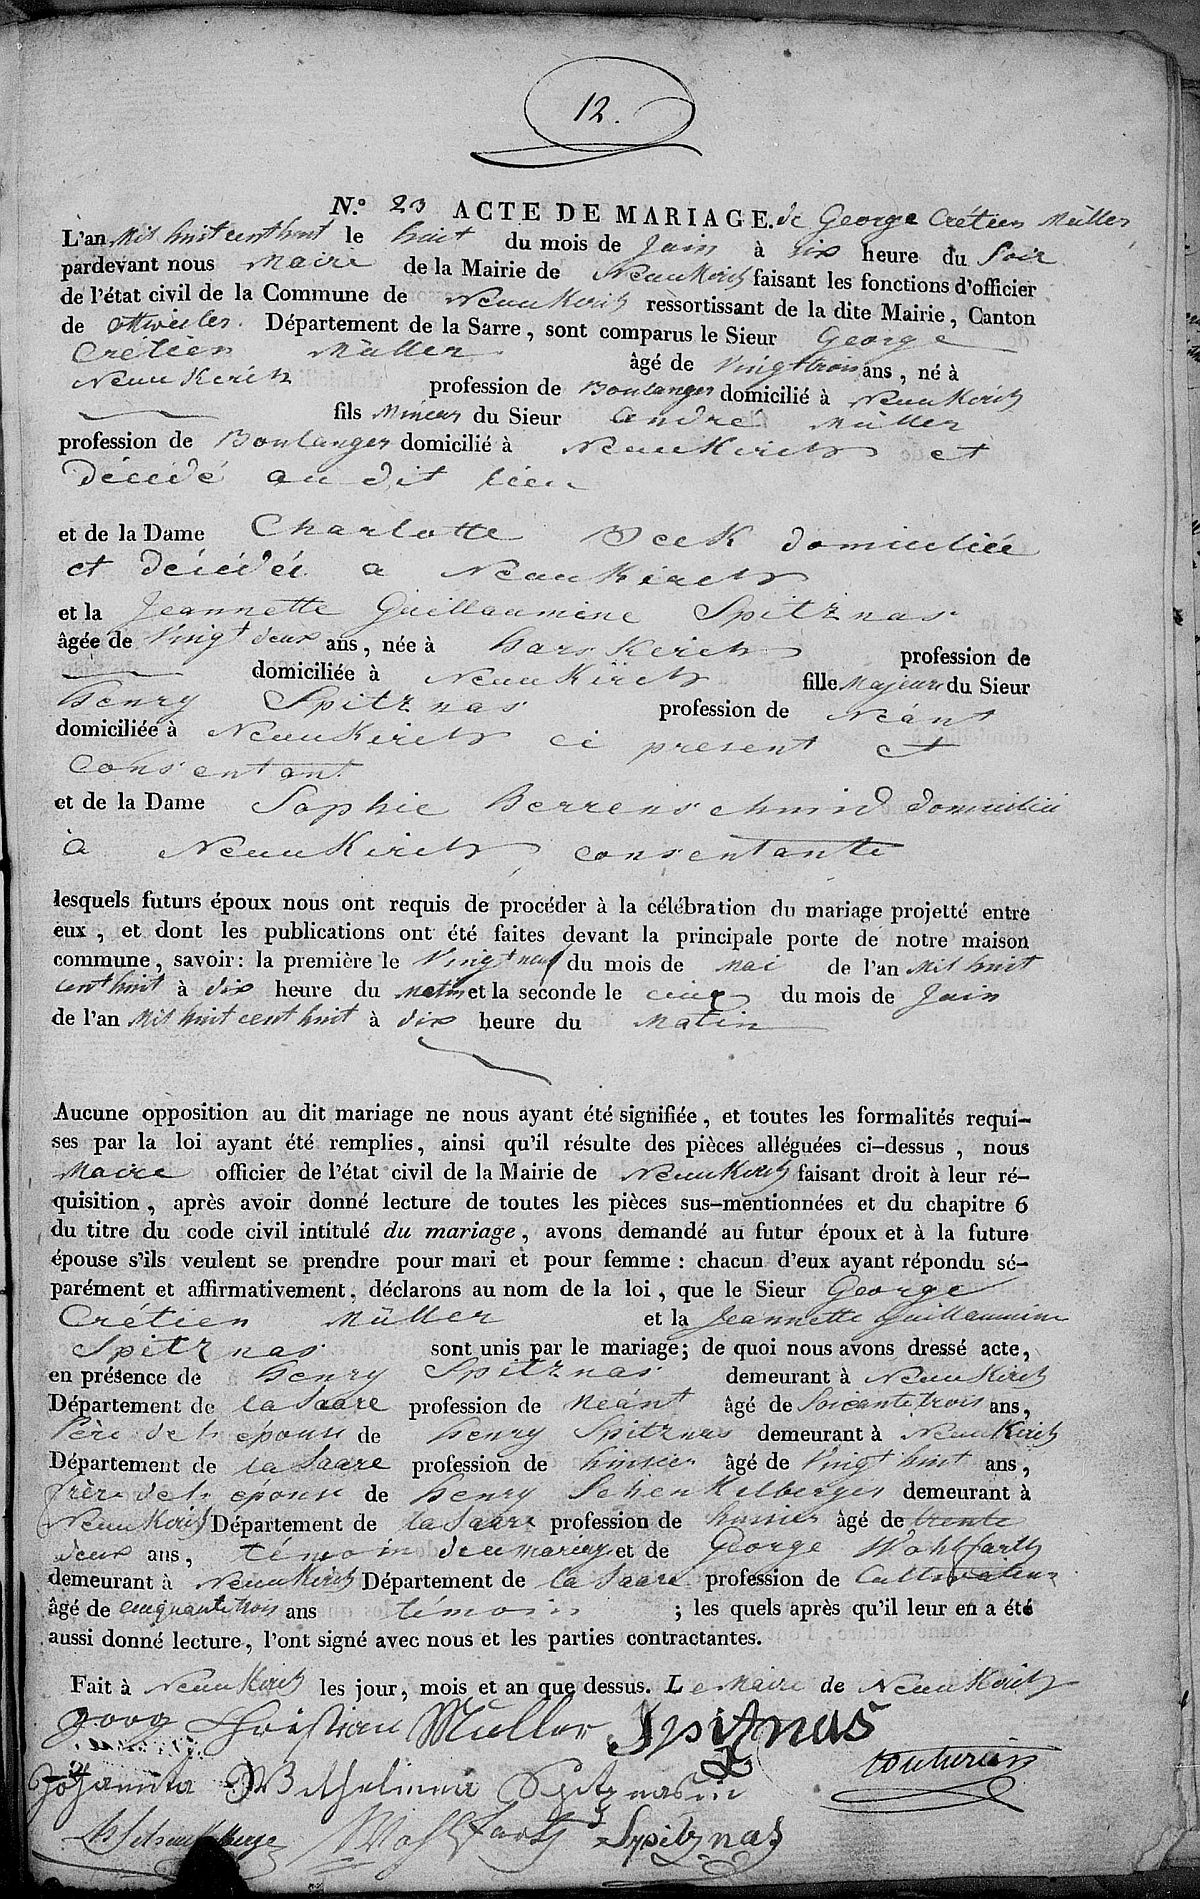 12.
N.º 23 ACTE DE MARIAGE. de George Crétien Müller,
L'an Mil huit cent huit le huit du mois de Juin à six heure du Soir
pardevant nous Maire de la Mairie de Neunkirch faisant les fonctions d'officier
de l'état civil de la Commune de Neunkirch ressortissant de la dite Mairie, Canton
de Ottweiler. Département de la Sarre, sont comparus le Sieur George
Crétien Müller âgé de Vingt trois ans, né à
Neunkirch profession de Boulanger domicilié à Neunkirch
fils Mineur du Sieur André Müller
profession de Boulanger domicilié à Neunkirch et
décédé au dit lieu
et de la Dame Charlotte Beck domiciliée
et décédée a Neunkirch
et la Jeannette Guillaumine Spitznas
âgée de Vingt deux ans, née à Harskirch profession de
domiciliée à Neunkirch fille Majeure du Sieur
Henry Spitznas profession de Néant
domiciliée à Neunkirch ci present et
Consentant
et de la Dame Sophie Berrenschmid domicilié
à Neunkirch consentante
lesquels futurs époux nous ont requis de procéder à la célébration du mariage projetté entre
eux, et dont les publications ont été faites devant la principale porte de notre maison
commune, savoir: la première le Vingt neuf du mois de Mai de l'an Mil huit
cent huit à dix heure du Matin et la seconde le cinq du mois de Juin
de l'an Mil huit cent huit à dix heure du Matin
Aucune opposition au dit mariage ne nous ayant été signifiée, et toutes les formalités requi-
ses par la loi ayant été remplies, ainsi qu'il résulte des pièces alléguées ci-dessus, nous
Maire officier de l'état civil de la Mairie de Neunkirch faisant droit à leur ré-
quisition, après avoir donné lecture de toutes les pièces sus-mentionnées et du chapitre 6
du titre du code civil intitulé du mariage, avons demandé au futur époux et à la future
épouse s'ils veulent se prendre pour mari et pour femme: chacun d'eux ayant répondu sé-
parément et affirmativement, déclarons au nom de la loi, que le Sieur George
Crétien Müller et la Jeannette Guillaumine
Spitznas sont unis par le mariage; de quoi nous avons dressé acte,
en présence de Henry Spitznas demeurant à Neunkirch
Département de la Saare profession de Néant âgé de Soicante trois ans,
Père de l'épouse de Henry Spitznas demeurant à Neunkirch
Département de la Saare profession de huisier âgé de Vingt huit ans,
frère de l'épouse de Henry Schenkelberger demeurant à
Neunkirch Département de la Saare profession de huisier âgé de trente
deux ans, témoin du mariage et de George Wohlfarth
demeurant à Neunkirch Département de la Saare profession de Cultivateur
âgé de cinquante trois ans témoin ; les quels après qu'il leur en a été
aussi donné lecture, l'ont signé avec nous et les parties contractantes.
Fait à Neunkirch les jour, mois et an que dessus. Le Maire de Neunkirch
Georg Christian Müller Spitznas
Couturier
Johannta Wilhelmina Spitznasin
Wohlfarth Spitznas